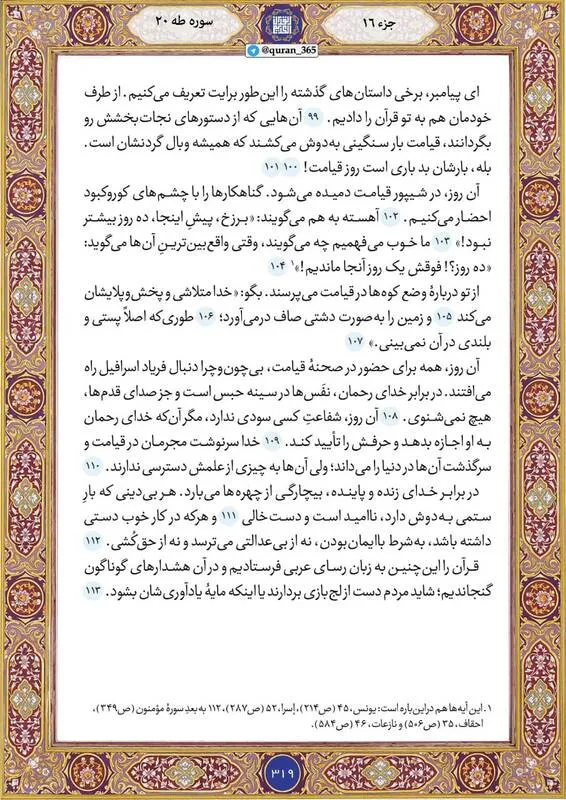 جزء ۱۶
سوره طه ۲۰
@quran_365
ای پیامبر، برخی داستان‌های گذشته را این‌طور برایت تعریف می‌کنیم. از طرف
خودمان هم به تو قرآن را دادیم. ۹۹ آن‌هایی که از دستورهای نجات‌بخشش رو
بگردانند، قیامت بار سنگینی به‌دوش می‌کشند که همیشه وبال گردنشان است.
بله، بارشان بد باری است روز قیامت! ۱۰۰ ۱۰۱
آن روز، در شیپور قیامت دمیده می‌شود. گناهکارها را با چشم‌های کوروکبود
احضار می‌کنیم. ۱۰۲ آهسته به هم می‌گویند: «برزخ، پیشِ اینجا، ده روز بیشتر
نبود!» ۱۰۳ ما خوب می‌فهمیم چه می‌گویند، وقتی واقع‌بین‌ترینِ آن‌ها می‌گوید:
«ده روز؟! فوقش یک روز آنجا ماندیم!»۱ ۱۰۴
از تو دربارهٔ وضع کوه‌ها در قیامت می‌پرسند. بگو: «خدا متلاشی و پخش‌وپلایشان
می‌کند ۱۰۵ و زمین را به‌صورت دشتی صاف درمی‌آورد؛ ۱۰۶ طوری‌که اصلاً پستی و
بلندی در آن نمی‌بینی.» ۱۰۷
آن روز، همه برای حضور در صحنهٔ قیامت، بی‌چون‌وچرا دنبال فریاد اسرافیل راه
می‌افتند. در برابر خدای رحمان، نفَس‌ها در سینه حبس است و جز صدای قدم‌ها،
هیچ نمی‌شنوی. ۱۰۸ آن روز، شفاعتِ کسی سودی ندارد، مگر آن‌که خدای رحمان
به او اجازه بدهد و حرفش را تأیید کند. ۱۰۹ خدا سرنوشت مجرمان در قیامت و
سرگذشت آن‌ها در دنیا را می‌داند؛ ولی آن‌ها به چیزی از علمش دسترسی ندارند. ۱۱۰
در برابر خدای زنده و پاینده، بیچارگی از چهره‌ها می‌بارد. هر بی‌دینی که بارِ
ستمی به‌دوش دارد، ناامید است و دست‌خالی ۱۱۱ و هرکه در کار خوب دستی
داشته باشد، به‌شرط باایمان‌بودن، نه از بی‌عدالتی می‌ترسد و نه از حق‌کُشی. ۱۱۲
قرآن را این‌چنین به زبان رسای عربی فرستادیم و در آن هشدارهای گوناگون
گنجاندیم؛ شاید مردم دست از لج‌بازی بردارند یا اینکه مایهٔ یادآوری‌شان بشود. ۱۱۳
۱. این آیه‌ها هم دراین‌باره است: یونس، ۴۵ (ص۲۱۴)، إسرا، ۵۲ (ص۲۸۷)، ۱۱۲ به‌بعدِ سورهٔ مؤمنون (ص۳۴۹)،
احقاف، ۳۵ (ص۵۰۶) و نازعات، ۴۶ (ص۵۸۴).
۳۱۹